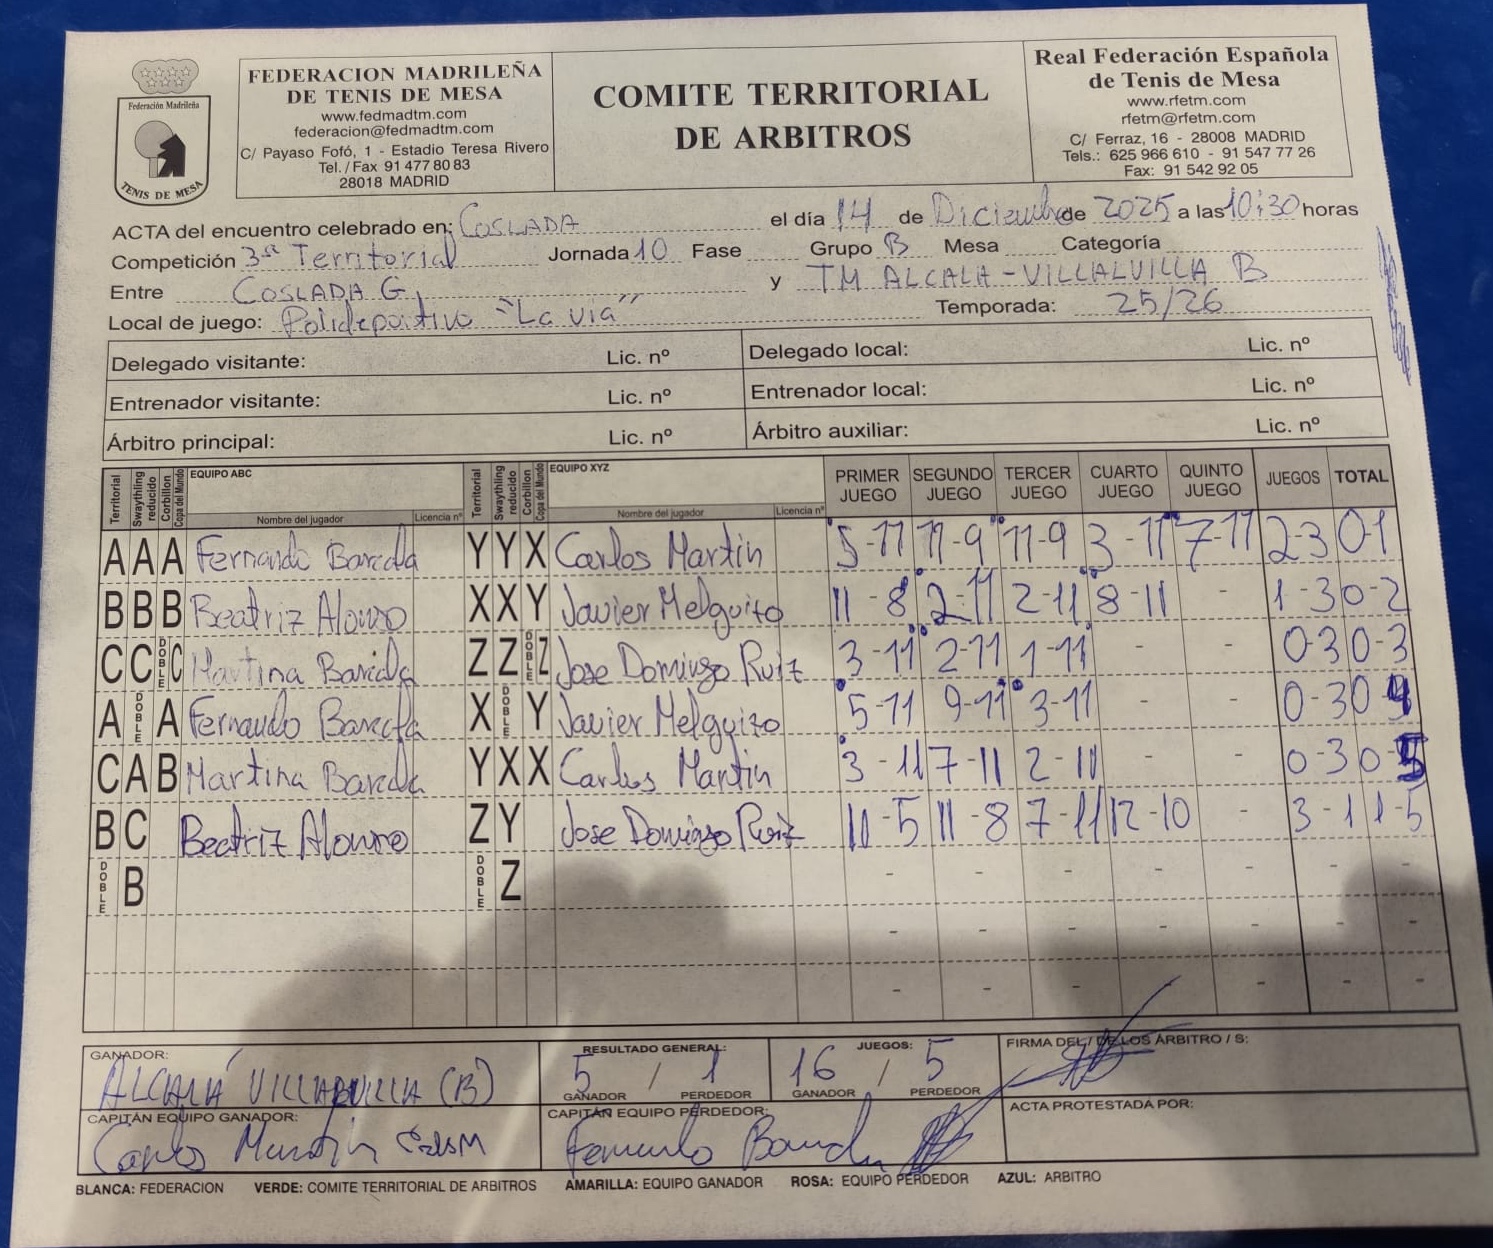 Federación Madrileña
TENIS DE MESA
FEDERACION MADRILEÑA
DE TENIS DE MESA
www.fedmadtm.com
federacion@fedmadtm.com
C/ Payaso Fofó, 1 - Estadio Teresa Rivero
Tel./Fax 91 477 80 83
28018 MADRID
COMITE TERRITORIAL
DE ARBITROS
Real Federación Española
de Tenis de Mesa
www.rfetm.com
rfetm@rfetm.com
C/ Ferraz, 16 - 28008 MADRID
Tels.: 625 966 610 - 91 547 77 26
Fax: 91 542 92 05
ACTA del encuentro celebrado en: COSLADA el día 14 de Diciembre de 2025 a las 10:30 horas
Competición 3ª Territorial Jornada 10 Fase Grupo B Mesa Categoría
Entre COSLADA G, y TM ALCALA-VILLALVILLA B
Local de juego: Polideportivo "La vía" Temporada: 25/26
Delegado visitante: Lic. nº Delegado local: Lic. nº
Entrenador visitante: Lic. nº Entrenador local: Lic. nº
Árbitro principal: Lic. nº Árbitro auxiliar: Lic. nº
Territorial Swaythling reducido Corbillon Copa del Mundo EQUIPO ABC Nombre del jugador Licencia nº Territorial Swaythling reducido Corbillon Copa del Mundo EQUIPO XYZ Nombre del jugador Licencia nº PRIMER JUEGO SEGUNDO JUEGO TERCER JUEGO CUARTO JUEGO QUINTO JUEGO JUEGOS TOTAL
A A A Fernando Bareda Y Y X Carlos Martín 5-11 11-9 11-9 3-11 7-11 2-3 0-1
B B B Beatriz Alonso X X Y Javier Melguizo 11-8 2-11 2-11 8-11 - 1-3 0-2
C C DOBLE C Martina Bareda Z Z DOBLE Z Jose Domingo Ruiz 3-11 2-11 1-11 - - 0-3 0-3
A DOBLE A Fernando Bareda X DOBLE Y Javier Melguizo 5-11 9-11 3-11 - - 0-3 0-4
C A B Martina Bareda Y X X Carlos Martín 3-11 7-11 2-11 - - 0-3 0-5
B C Beatriz Alonso Z Y Jose Domingo Ruiz 11-5 11-8 7-11 12-10 - 3-1 1-5
DOBLE B DOBLE Z - - - - - - -
- - - - - - -
- - - - - - -
GANADOR: ALCALÁ VILLALVILLA (B)
RESULTADO GENERAL: 5 / 1
GANADOR PERDEDOR
JUEGOS: 16 / 5
GANADOR PERDEDOR
FIRMA DEL / DE LOS ARBITRO / S:
CAPITÁN EQUIPO GANADOR: Carlos Martín
CAPITÁN EQUIPO PERDEDOR: Fernando Bareda
ACTA PROTESTADA POR:
BLANCA: FEDERACION VERDE: COMITE TERRITORIAL DE ARBITROS AMARILLA: EQUIPO GANADOR ROSA: EQUIPO PERDEDOR AZUL: ARBITRO